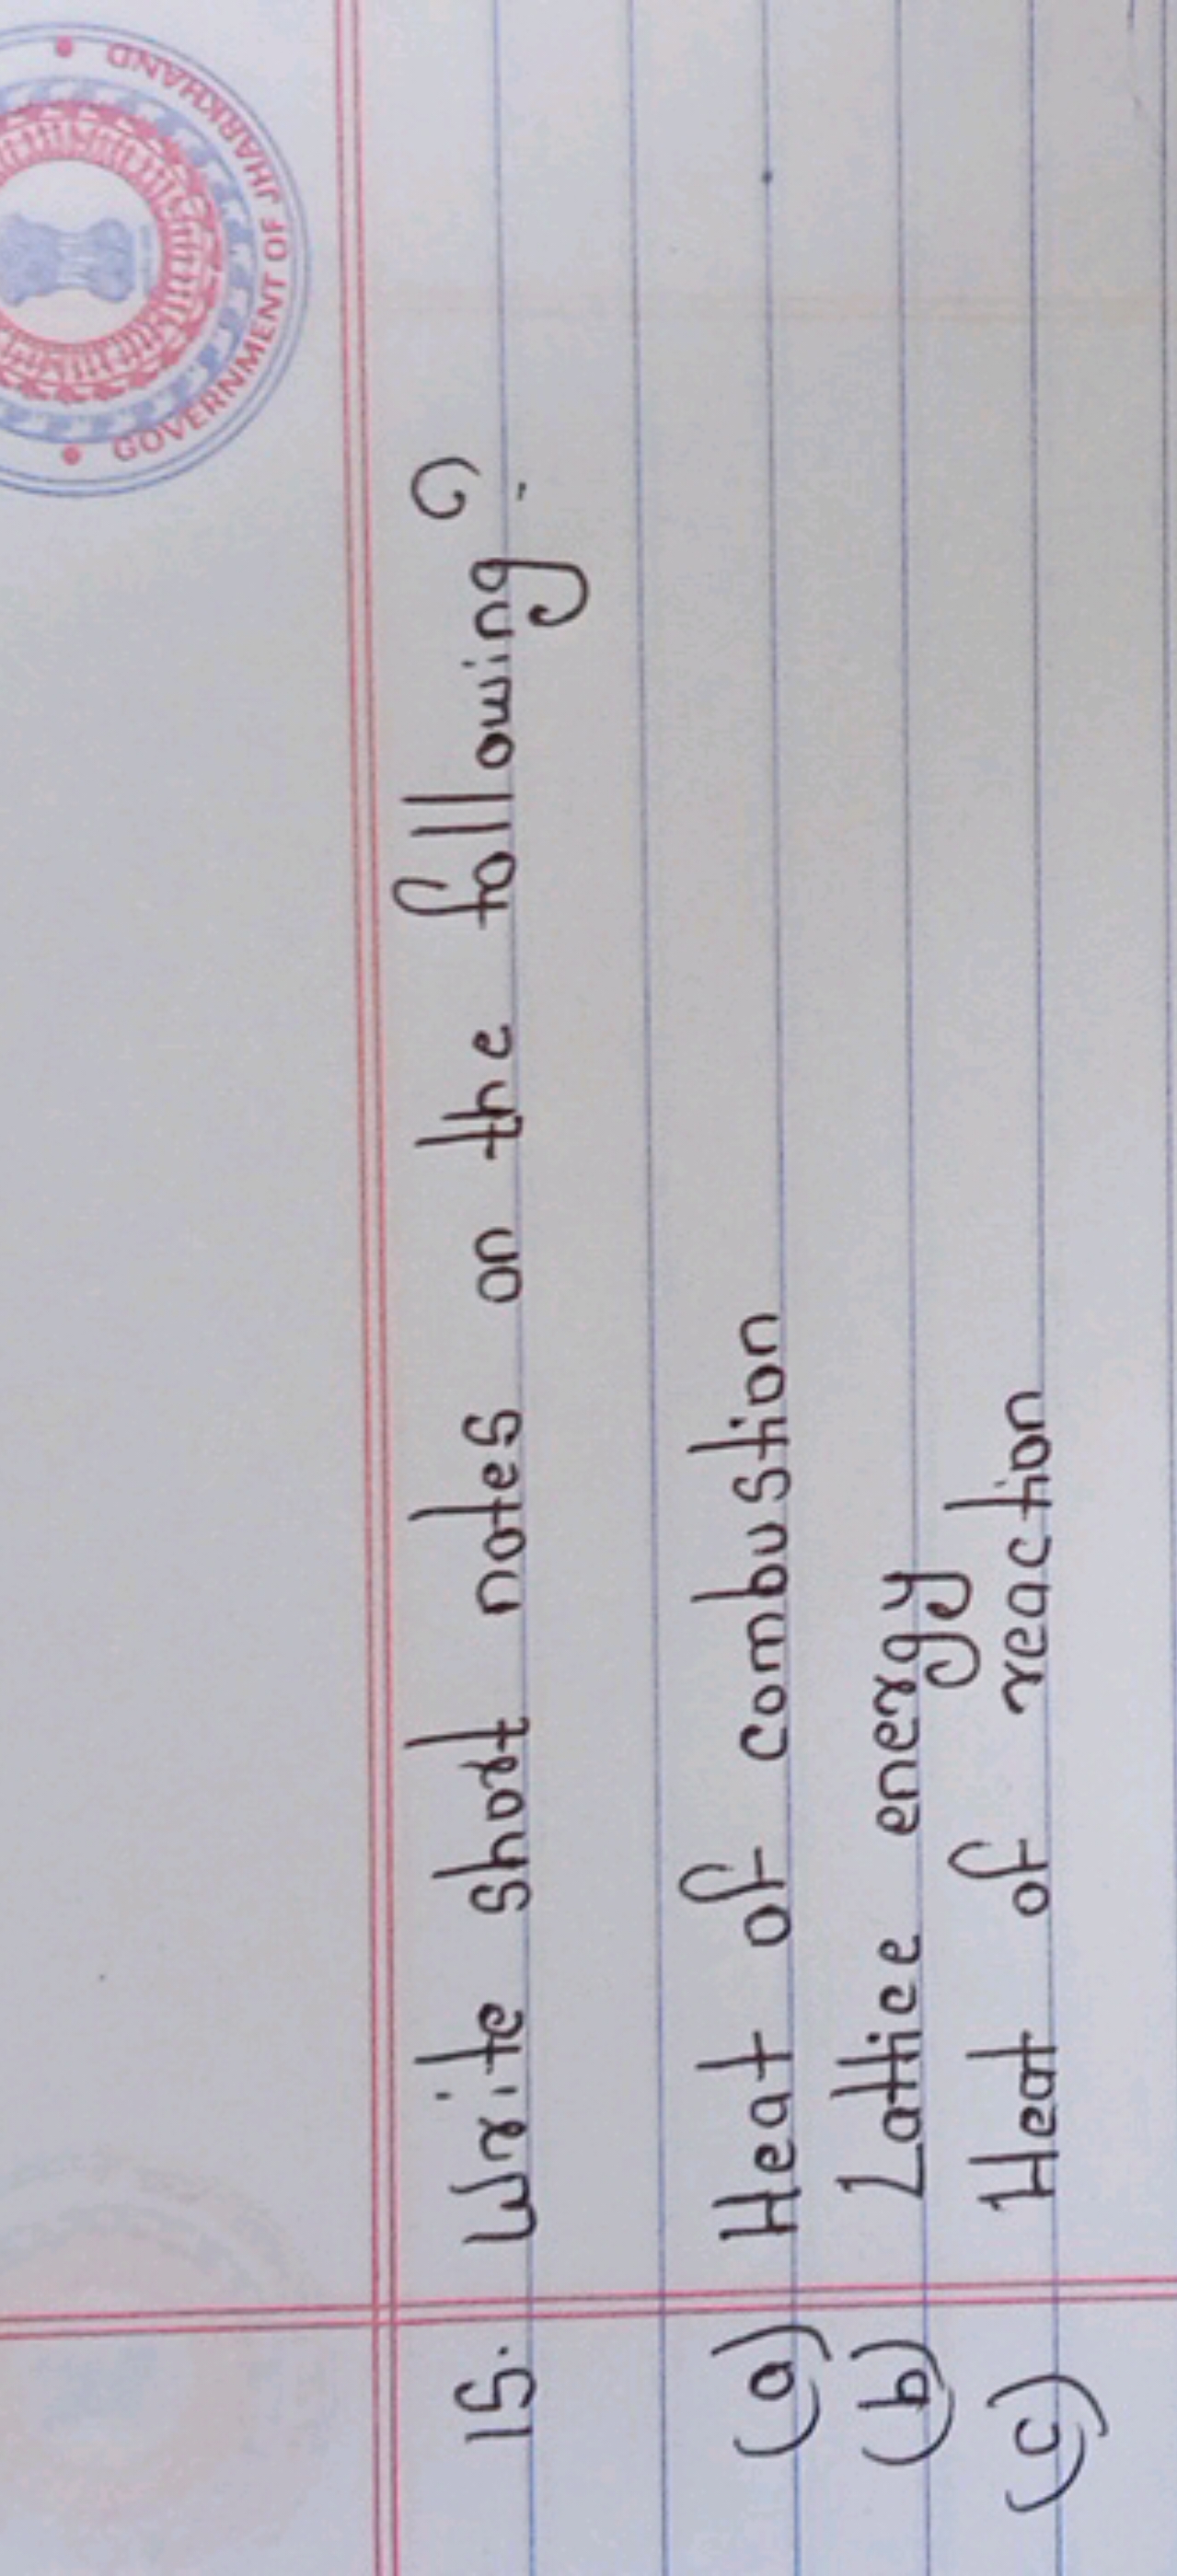 GOVERNMENT OF JHARKHAND
15. Write short notes on the following?
(a) Heat of combustion
(b) Lattice energy
(c) Heat of reaction